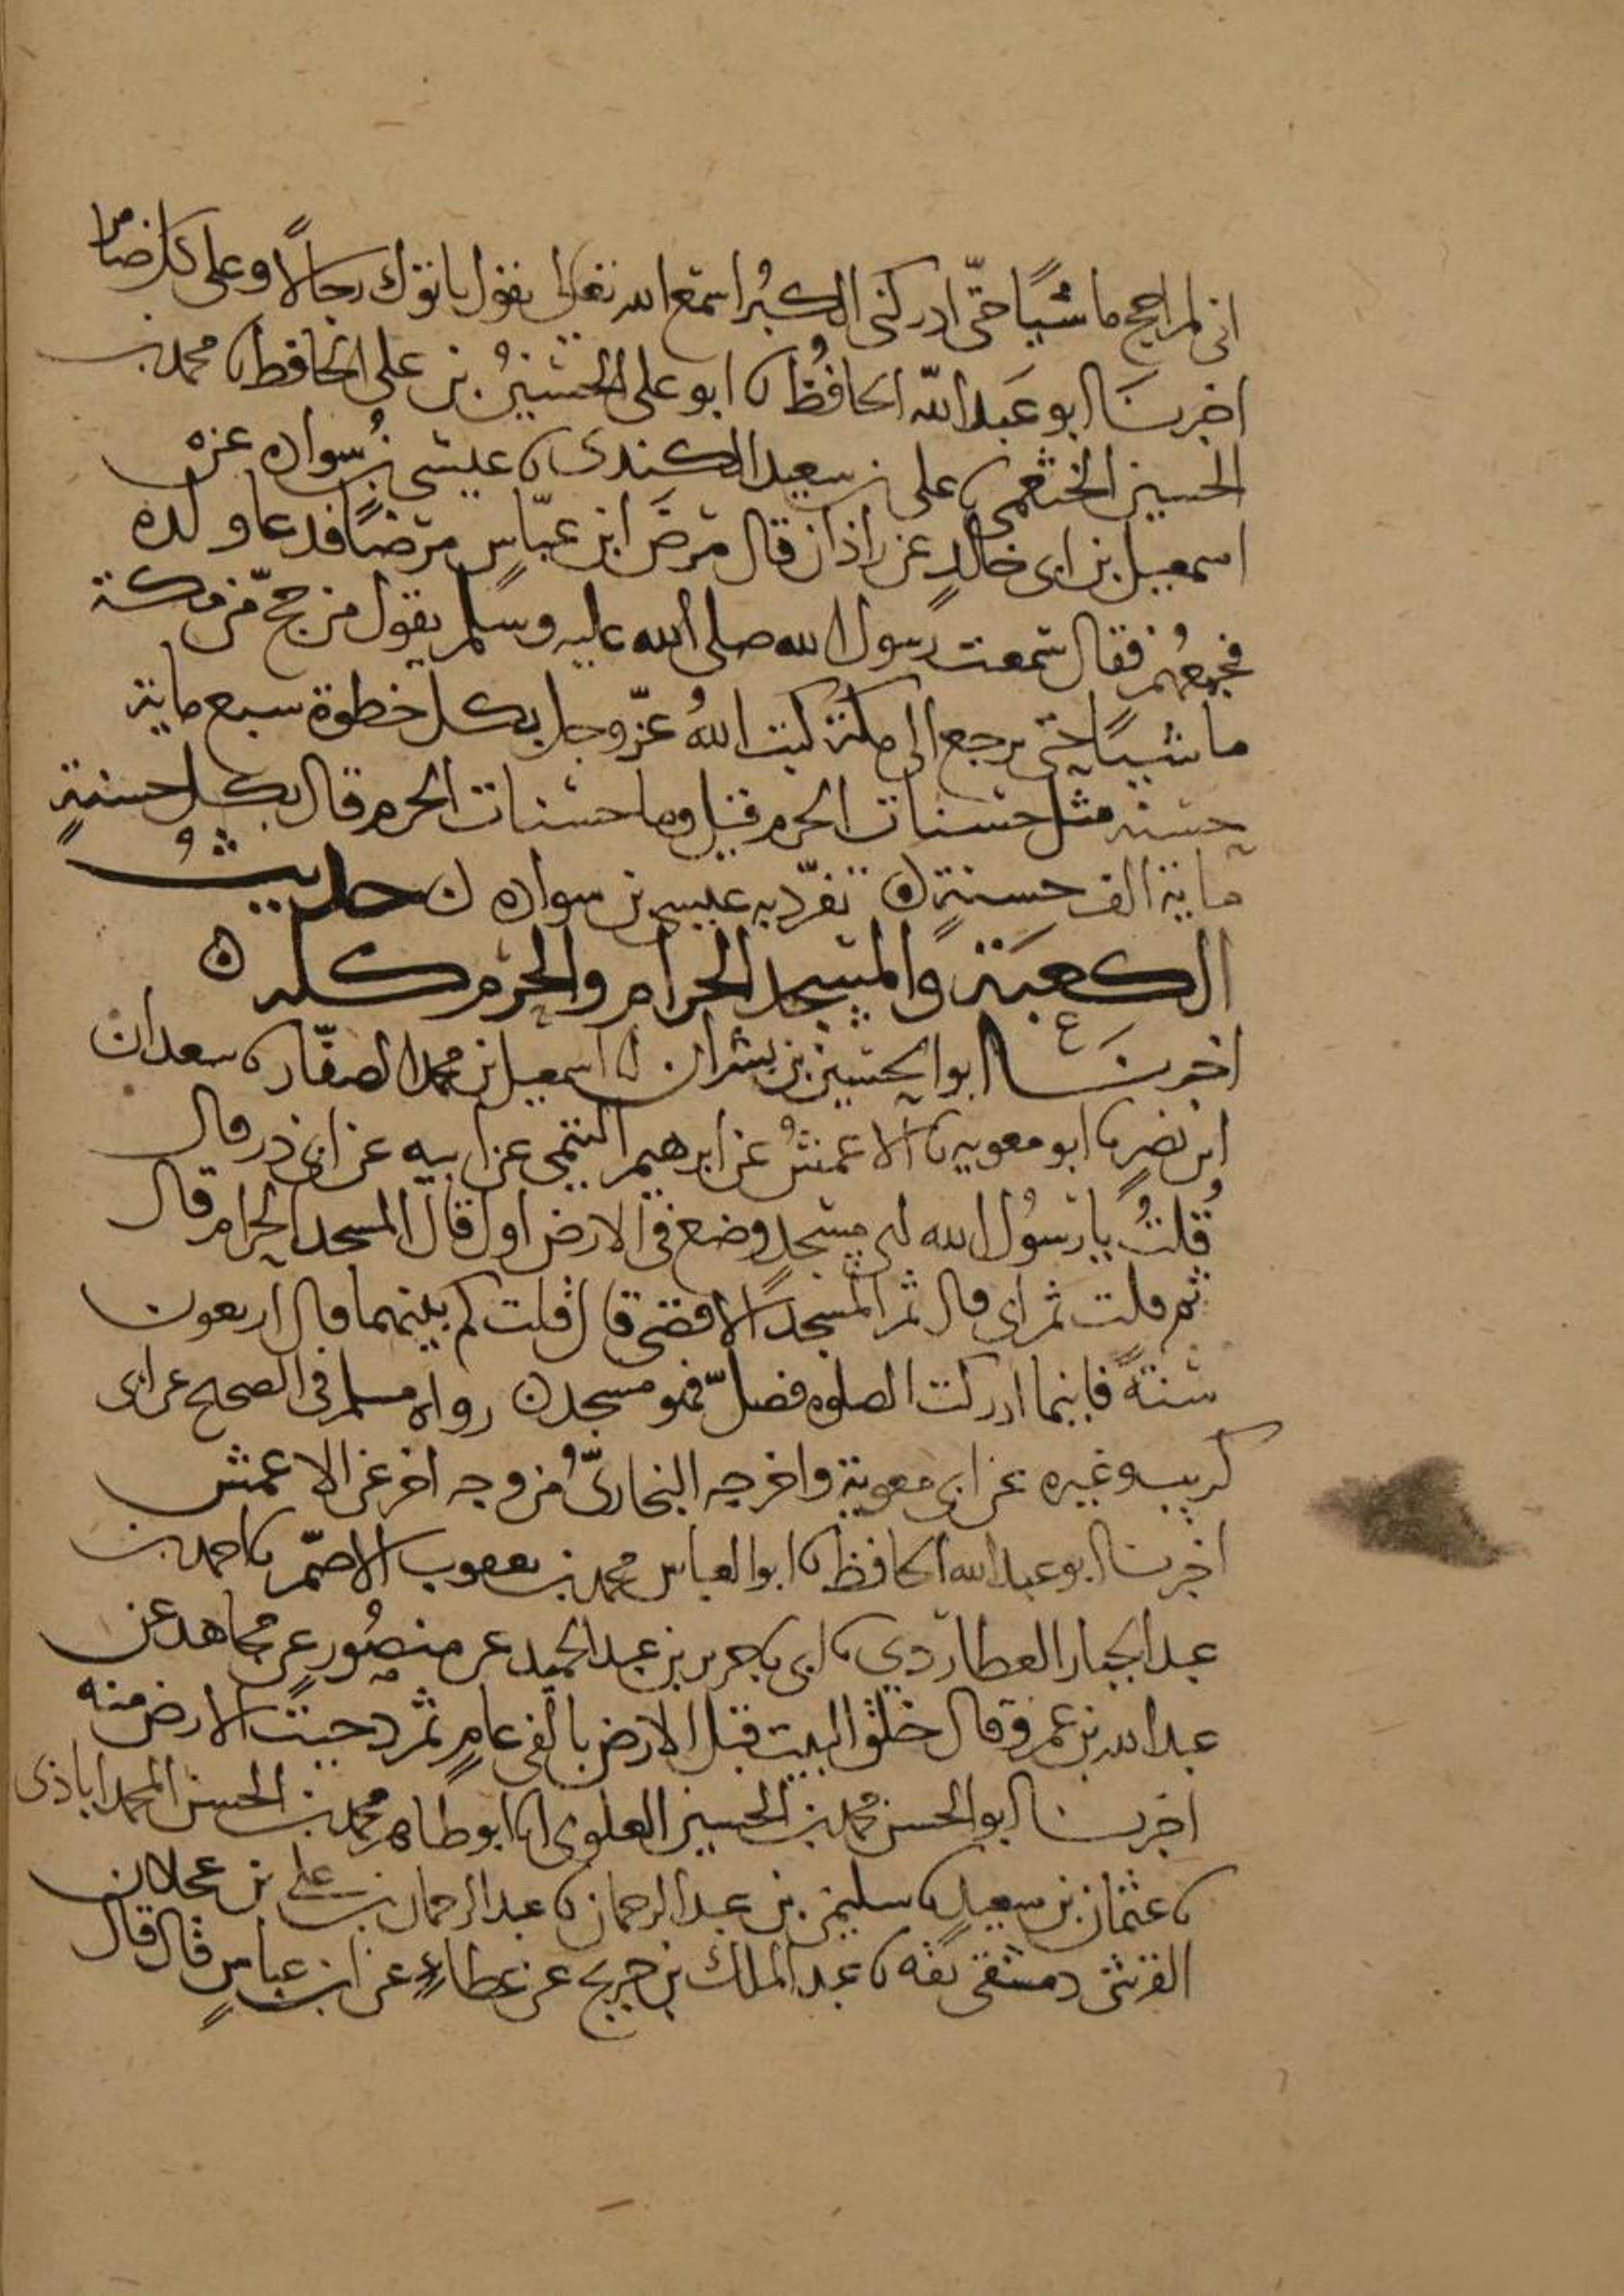 انى لم احج ماشيًا حتّى ادركنى الكبُر اسمع الله تعالى يقول ياتوك رجالًا وعلى كل ضامر
اخبرنَا ابو عَبد الله الحافُظ نا ابو على الحسينُ بن على الحافظ نا محمد بن
الحسين الخثعمى نا على بن سعيد الكندى نا عيسى بن سُواده عن
اسمعيل بن ابى خالدٍ عن زاذان قال مرضَ ابن عبّاسٍ مرضًا فدعا ولده
فجمعهُم فقال سمعت رسول الله صلى الله عليه وسلم يقول من حجّ من مكة
ماشيًا حتى يرجع الى مكة كتب اللهُ عزّ وجل بكل خطوة سبع ماية
حسنه مثل حسنات الحرم قيل وما حسنات الحرم قال بكل حسنةٍ
ماية الف حسنةٍ ن تفرّد به عيسى بن سواده ن حديثُ
الكعبَة والمسجد الحرام والحرم كله ن
اخبرنَا ابو الحسين بن بشران انا اسمعيل بن محمد الصفّار نا سعدان
ابن نصرٍ نا ابو معويه نا الاعمشُ عن ابرهيم التيمى عن ابيه عن ابى ذر قال
قُلتُ يا رسُول الله اى مسجدٍ وضع فى الارض اول قال المسجد الحرام قال
ثم قلت ثم اى قال ثم المسجد الاقصى قال قلت كم بينهما قال اربعون
سنةً فاينما ادركت الصلوه فصلّ فهو مسجد ن رواه مسلم فى الصحيح عن ابى
كريب وغيره عن ابى معوية واخرجه البخارىّ من وجه اخر عن الاعمش
اخبرنا ابو عبد الله الحافظ نا ابو العباس محمد بن يعقوب الاصمّ نا احمد بن
عبد الجبار العطاردي نا ابى نا جرير بن عبد الحميد عن منصُورٍ عن مجاهد عن
عبد الله بن عمرو قال خلق البيت قبل الارض بالفى عامٍ ثم دحيت الارض منه
اخبرنا ابو الحسن محمد بن الحسين العلوى انا ابو طاهر محمد بن الحسن المحمداباذى
نا عثمان بن سعيدٍ نا سليمن بن عبد الرحمان نا عبد الرحمان بن على بن عجلان
القرشى دمشقى ثقه نا عبد الملك بن جريج عن عطاءٍ عن ابن عباسٍ قال قال